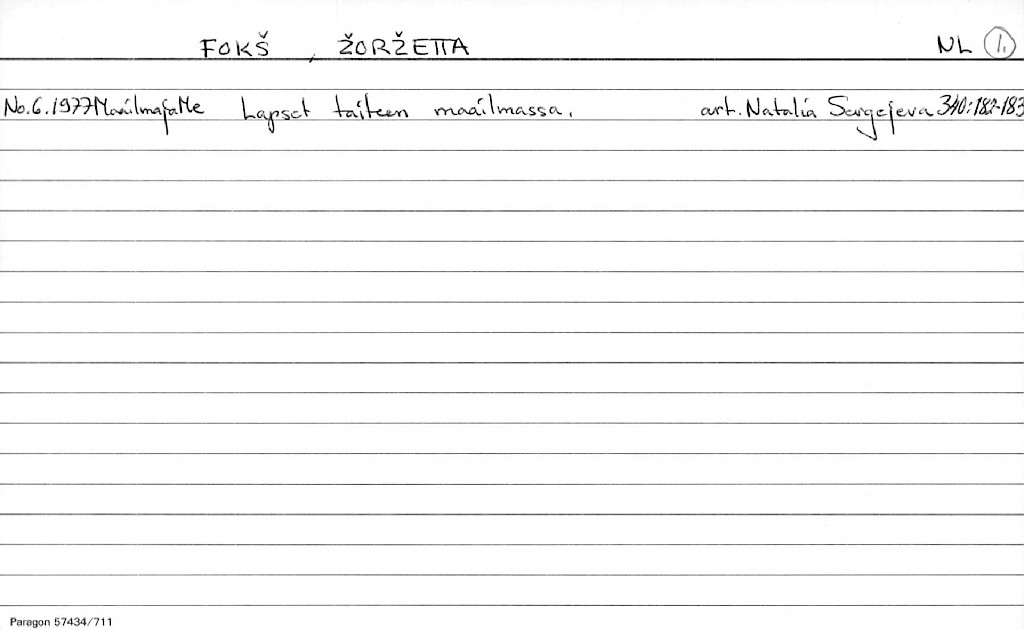 FOKŠ, ŽORŽETTA NL 1.
No.6.1977 Maailma ja Me Lapset taiteen maailmassa. art. Natalia Sergejeva 340:182-183
Paragon 57434/711